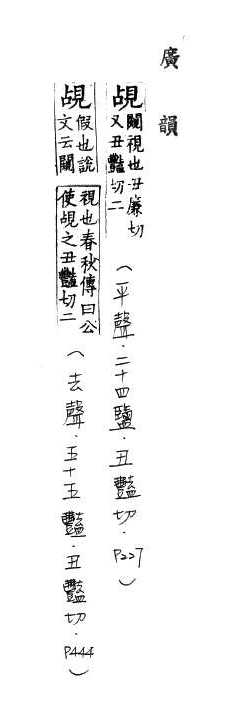 廣韻
覘 闚視也丑廉切
又丑豔切二
(平聲.二十四鹽.丑豔切.P227)
覘 假也說
文云闚
視也春秋傳曰公
使覘之丑豔切二
(去聲.五十五豔.丑豔切.P444)